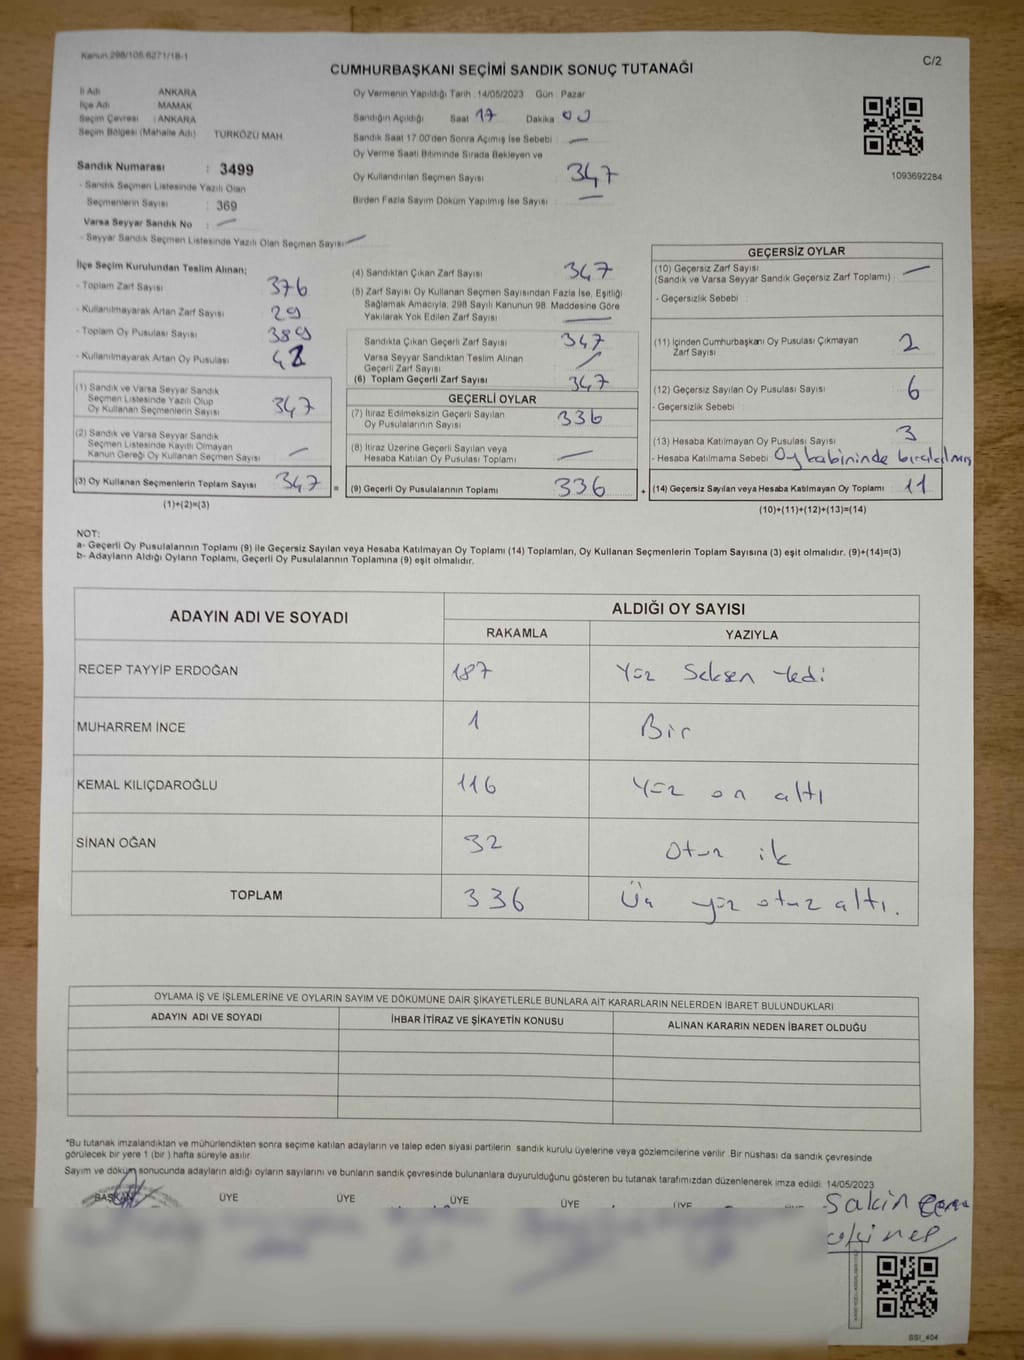 Kanun 298/105 6271/18-1
CUMHURBAŞKANI SEÇİMİ SANDIK SONUÇ TUTANAĞI
C/2
İl Adı ANKARA
İlçe Adı MAMAK
Seçim Çevresi : ANKARA
Seçim Bölgesi (Mahalle Adı) TÜRKÖZÜ MAH
Sandık Numarası : 3499
- Sandık Seçmen Listesinde Yazılı Olan
Seçmenlerin Sayısı : 369
Varsa Seyyar Sandık No : —
- Seyyar Sandık Seçmen Listesinde Yazılı Olan Seçmen Sayısı —
Oy Vermenin Yapıldığı Tarih : 14/05/2023 Gün : Pazar
Sandığın Açıldığı Saat 17 Dakika 00
Sandık Saat 17:00'den Sonra Açılmış İse Sebebi : —
Oy Verme Saati Bitiminde Sırada Bekleyen ve
Oy Kullandırılan Seçmen Sayısı 347
Birden Fazla Sayım Döküm Yapılmış İse Sayısı —
1093692284
İlçe Seçim Kurulundan Teslim Alınan;
- Toplam Zarf Sayısı 376
- Kullanılmayarak Artan Zarf Sayısı 29
- Toplam Oy Pusulası Sayısı 389
- Kullanılmayarak Artan Oy Pusulası 42
(1) Sandık ve Varsa Seyyar Sandık
Seçmen Listesinde Yazılı Olup
Oy Kullanan Seçmenlerin Sayısı 347
(2) Sandık ve Varsa Seyyar Sandık
Seçmen Listesinde Kayıtlı Olmayan
Kanun Gereği Oy Kullanan Seçmen Sayısı —
(3) Oy Kullanan Seçmenlerin Toplam Sayısı 347 =
(1)+(2)=(3)
(4) Sandıktan Çıkan Zarf Sayısı 347
(5) Zarf Sayısı Oy Kullanan Seçmen Sayısından Fazla İse, Eşitliği
Sağlamak Amacıyla, 298 Sayılı Kanunun 98. Maddesine Göre
Yakılarak Yok Edilen Zarf Sayısı —
Sandıkta Çıkan Geçerli Zarf Sayısı 347
Varsa Seyyar Sandıktan Teslim Alınan
Geçerli Zarf Sayısı —
(6) Toplam Geçerli Zarf Sayısı 347
GEÇERLİ OYLAR
(7) İtiraz Edilmeksizin Geçerli Sayılan
Oy Pusulalarının Sayısı 336
(8) İtiraz Üzerine Geçerli Sayılan veya
Hesaba Katılan Oy Pusulası Toplamı —
(9) Geçerli Oy Pusulalarının Toplamı 336 +
GEÇERSİZ OYLAR
(10) Geçersiz Zarf Sayısı —
(Sandık ve Varsa Seyyar Sandık Geçersiz Zarf Toplamı) :
- Geçersizlik Sebebi :
(11) İçinden Cumhurbaşkanı Oy Pusulası Çıkmayan
Zarf Sayısı 2
(12) Geçersiz Sayılan Oy Pusulası Sayısı 6
- Geçersizlik Sebebi :
(13) Hesaba Katılmayan Oy Pusulası Sayısı 3
- Hesaba Katılmama Sebebi Oy kabininde bırakılmış
(14) Geçersiz Sayılan veya Hesaba Katılmayan Oy Toplamı 11
(10)+(11)+(12)+(13)=(14)
NOT:
a- Geçerli Oy Pusulalarının Toplamı (9) ile Geçersiz Sayılan veya Hesaba Katılmayan Oy Toplamı (14) Toplamları, Oy Kullanan Seçmenlerin Toplam Sayısına (3) eşit olmalıdır. (9)+(14)=(3)
b- Adayların Aldığı Oyların Toplamı, Geçerli Oy Pusulalarının Toplamına (9) eşit olmalıdır.
ADAYIN ADI VE SOYADI
ALDIĞI OY SAYISI
RAKAMLA YAZIYLA
RECEP TAYYİP ERDOĞAN 187 Yüz Seksen Yedi
MUHARREM İNCE 1 Bir
KEMAL KILIÇDAROĞLU 116 Yüz on altı
SİNAN OĞAN 32 Otuz ik
TOPLAM 336 Üç yüz otuz altı.
OYLAMA İŞ VE İŞLEMLERİNE VE OYLARIN SAYIM VE DÖKÜMÜNE DAİR ŞİKAYETLERLE BUNLARA AİT KARARLARIN NELERDEN İBARET BULUNDUKLARI
ADAYIN ADI VE SOYADI İHBAR İTİRAZ VE ŞİKAYETİN KONUSU ALINAN KARARIN NEDEN İBARET OLDUĞU
*Bu tutanak imzalandıktan ve mühürlendikten sonra seçime katılan adayların ve talep eden siyasi partilerin sandık kurulu üyelerine veya gözlemcilerine verilir. Bir nüshası da sandık çevresinde
görülecek bir yere 1 (bir ) hafta süreyle asılır.
Sayım ve döküm sonucunda adayların aldığı oyların sayılarını ve bunların sandık çevresinde bulunanlara duyurulduğunu gösteren bu tutanak tarafımızdan düzenlenerek imza edildi. 14/05/2023
BAŞKAN ÜYE ÜYE ÜYE ÜYE ÜYE
Sakin
SSI_404